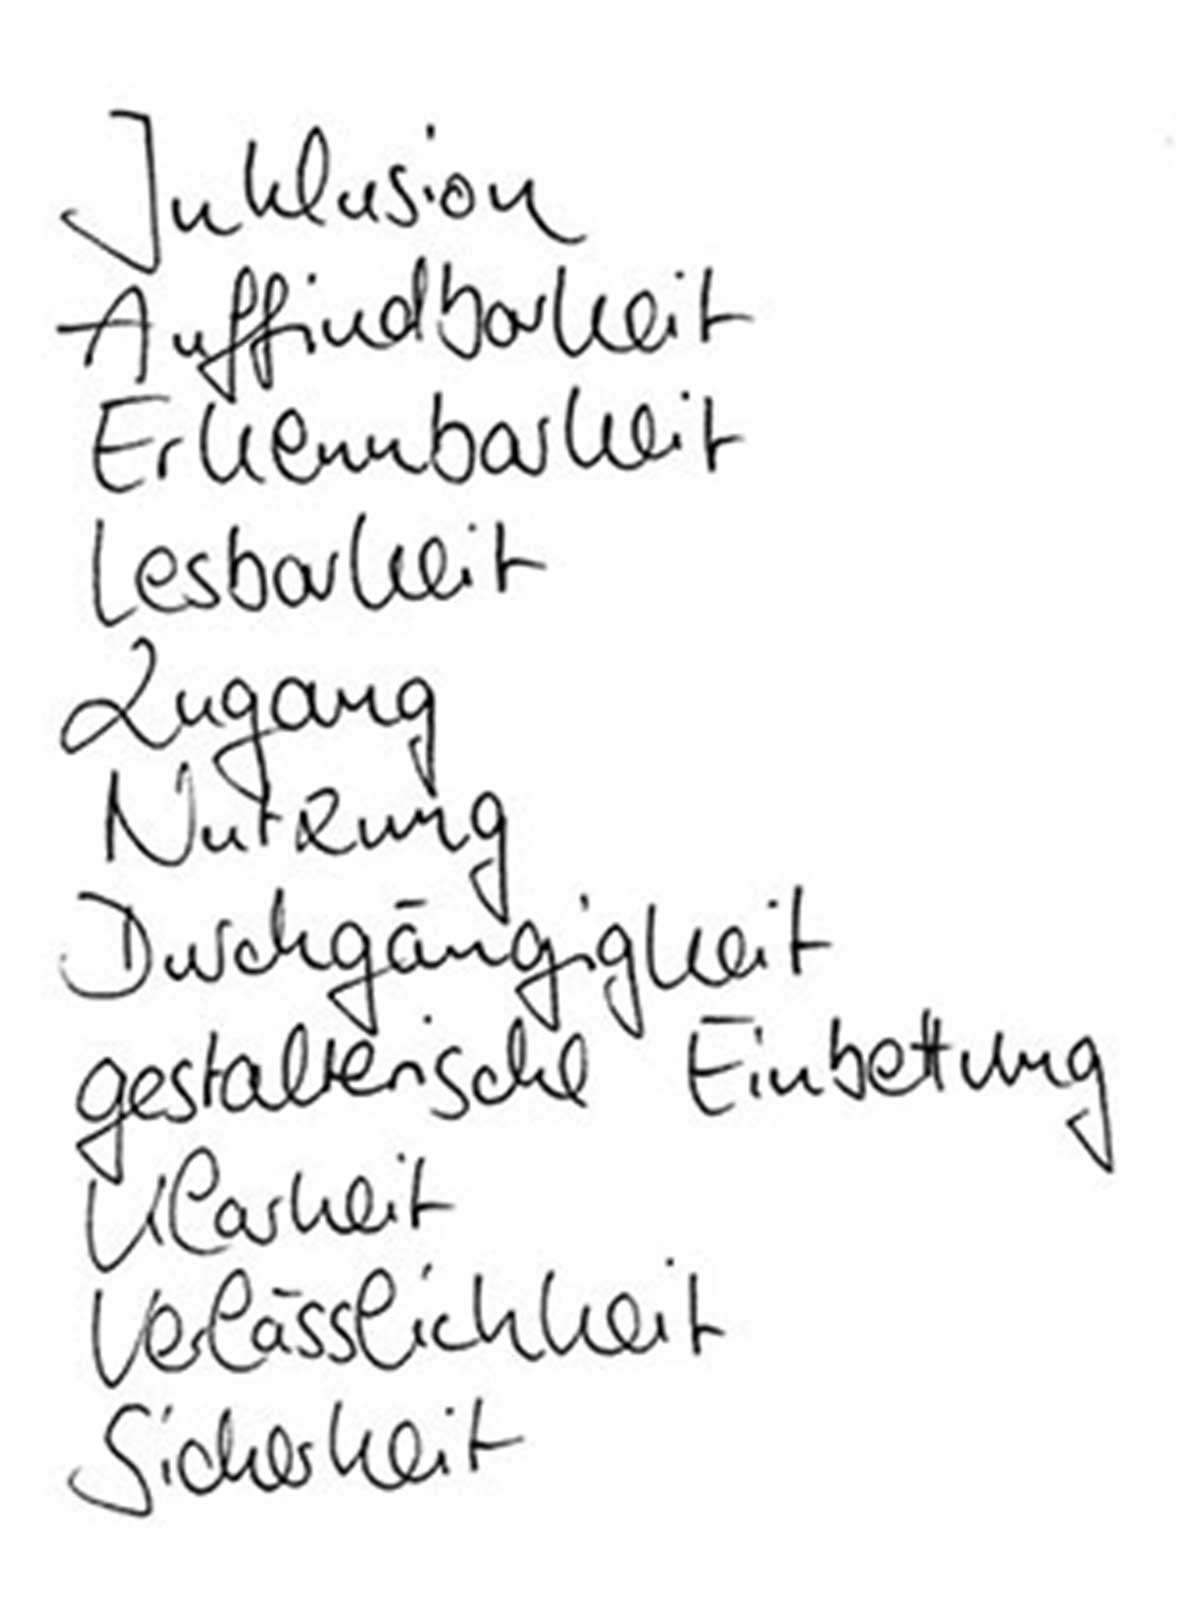 Inklusion
Auffindbarkeit
Erkennbarkeit
Lesbarkeit
Zugang
Nutzung
Durchgängigkeit
gestalterische Einbettung
Klarheit
Verlässlichkeit
Sicherheit